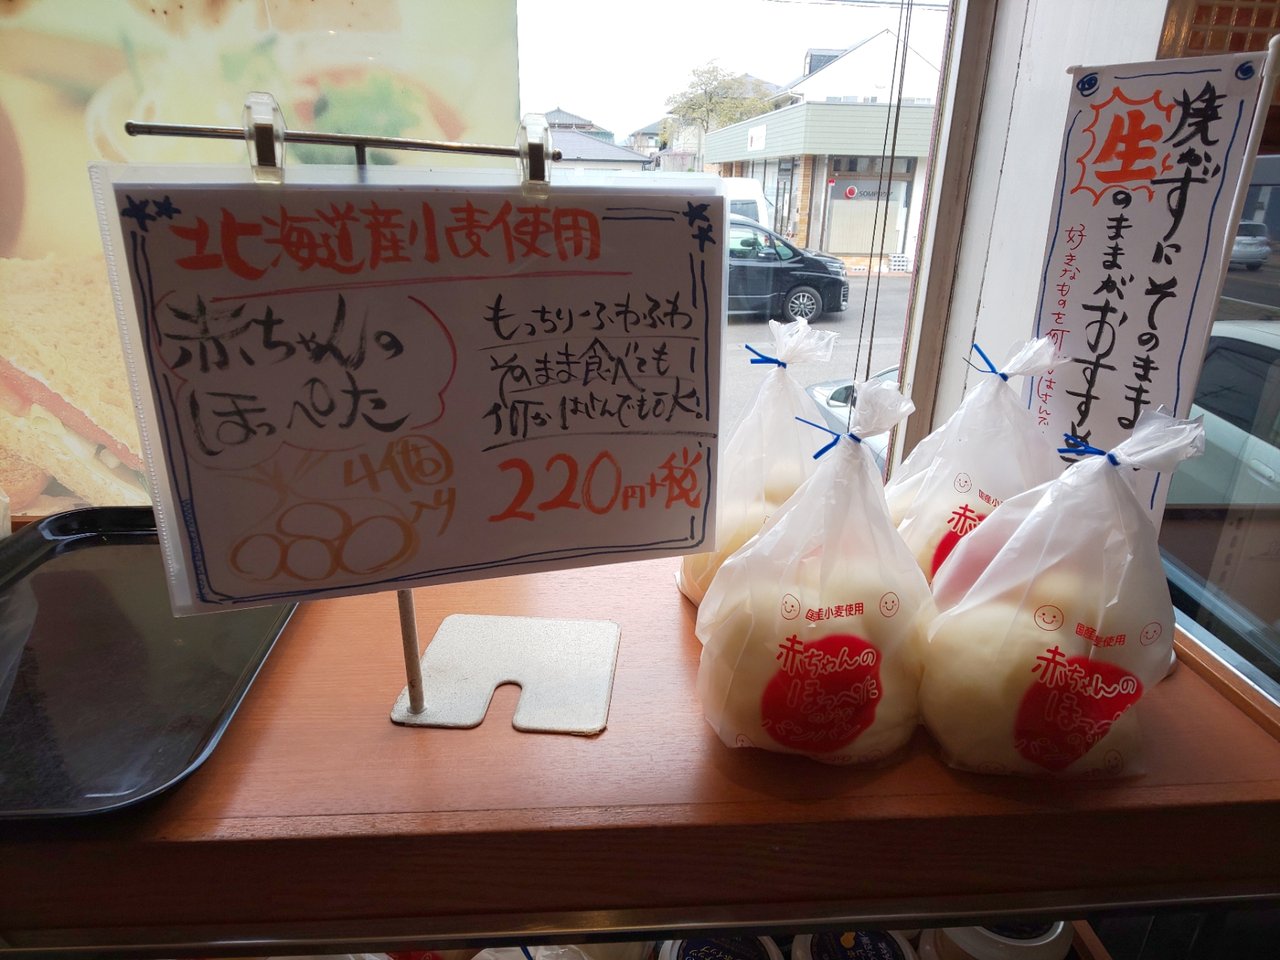 北海道産小麦使用
赤ちゃんの
ほっぺた
4個
入り
もっちりふわふわ
そのまま食べても
何かはさんでもOK!
220円+税
焼かずにそのまま
生のままがおすすめ
好きなものを何
はさんで
国産小麦使用
赤ちゃんの
ほっぺた
パン
国産小麦使用
赤ちゃんの
ほっぺた
国産小
赤
SOMPO